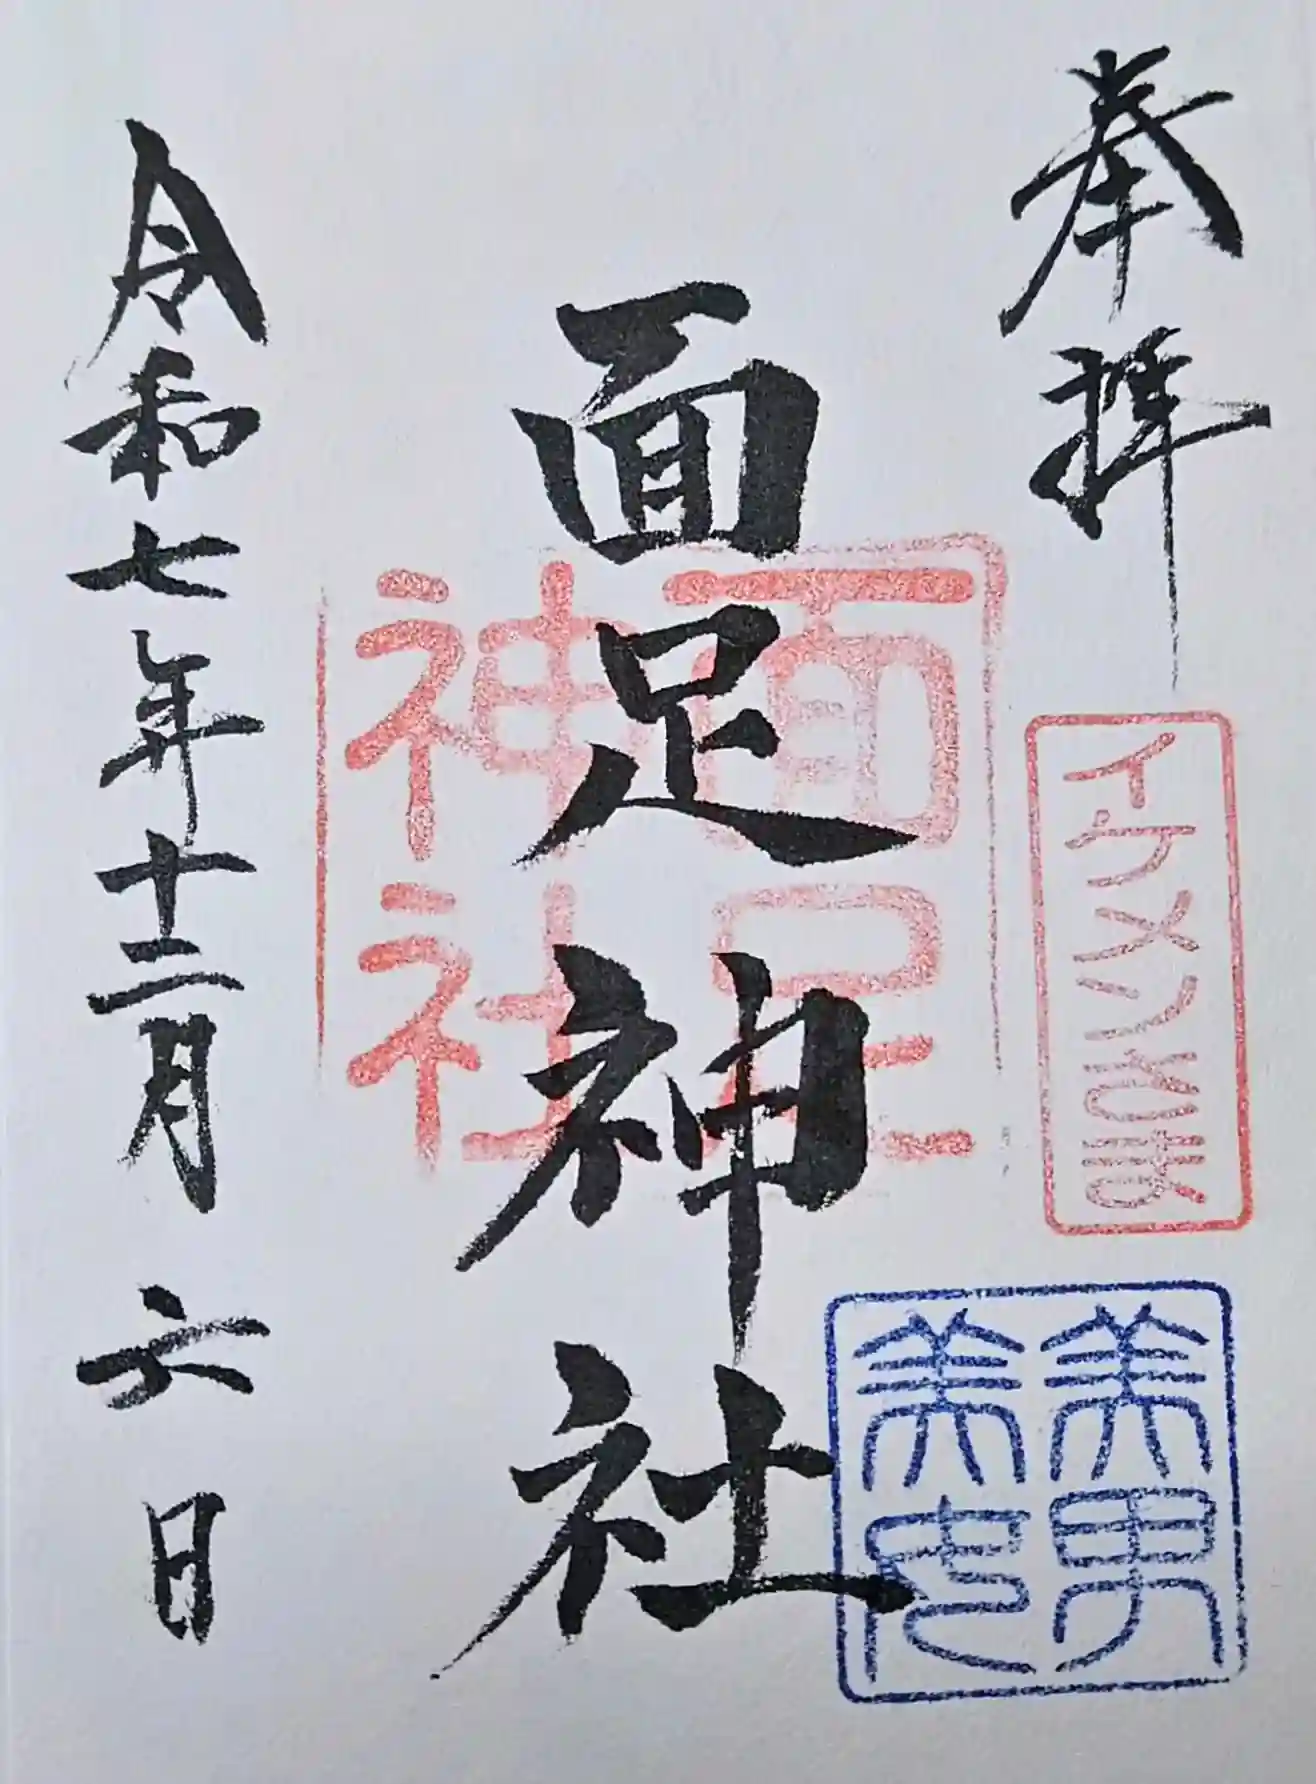 奉拝
イケメン
面足神社
面足
神社
美男
美女
令和七年十二月六日